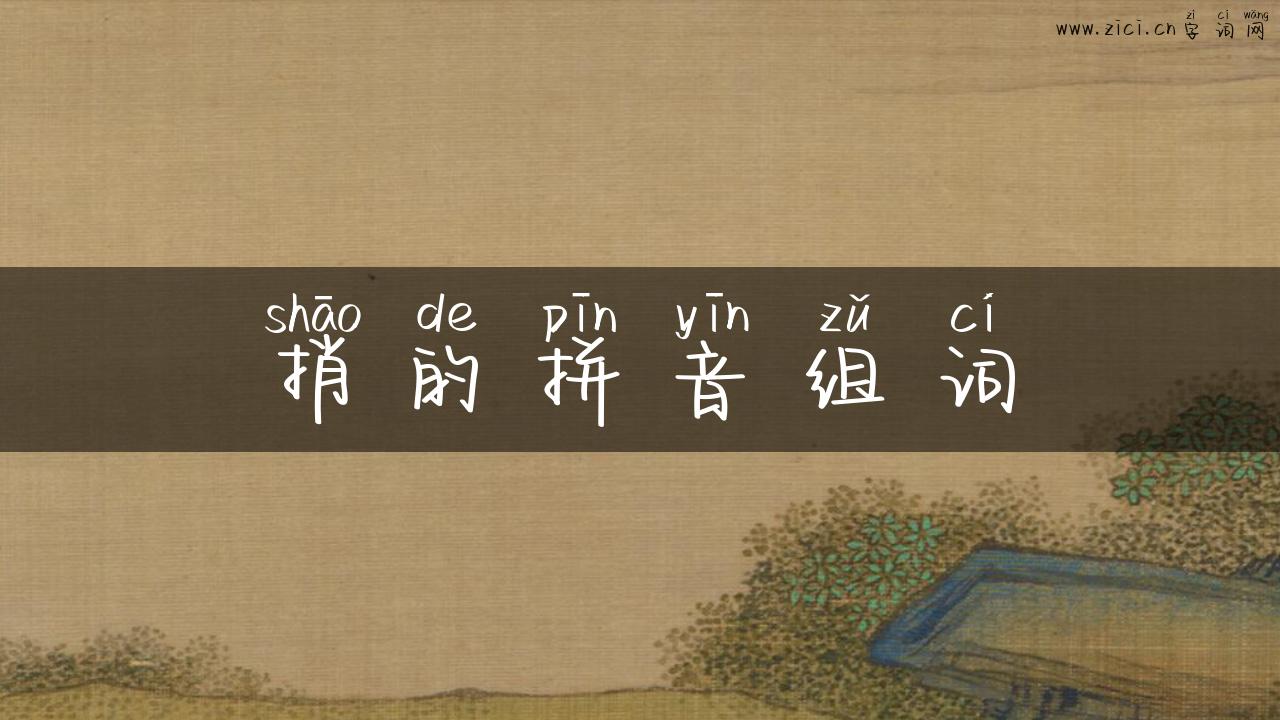 zì cí wǎng
www.zici.cn 字词网
shāo de pīn yīn zǔ cí
捎的拼音组词